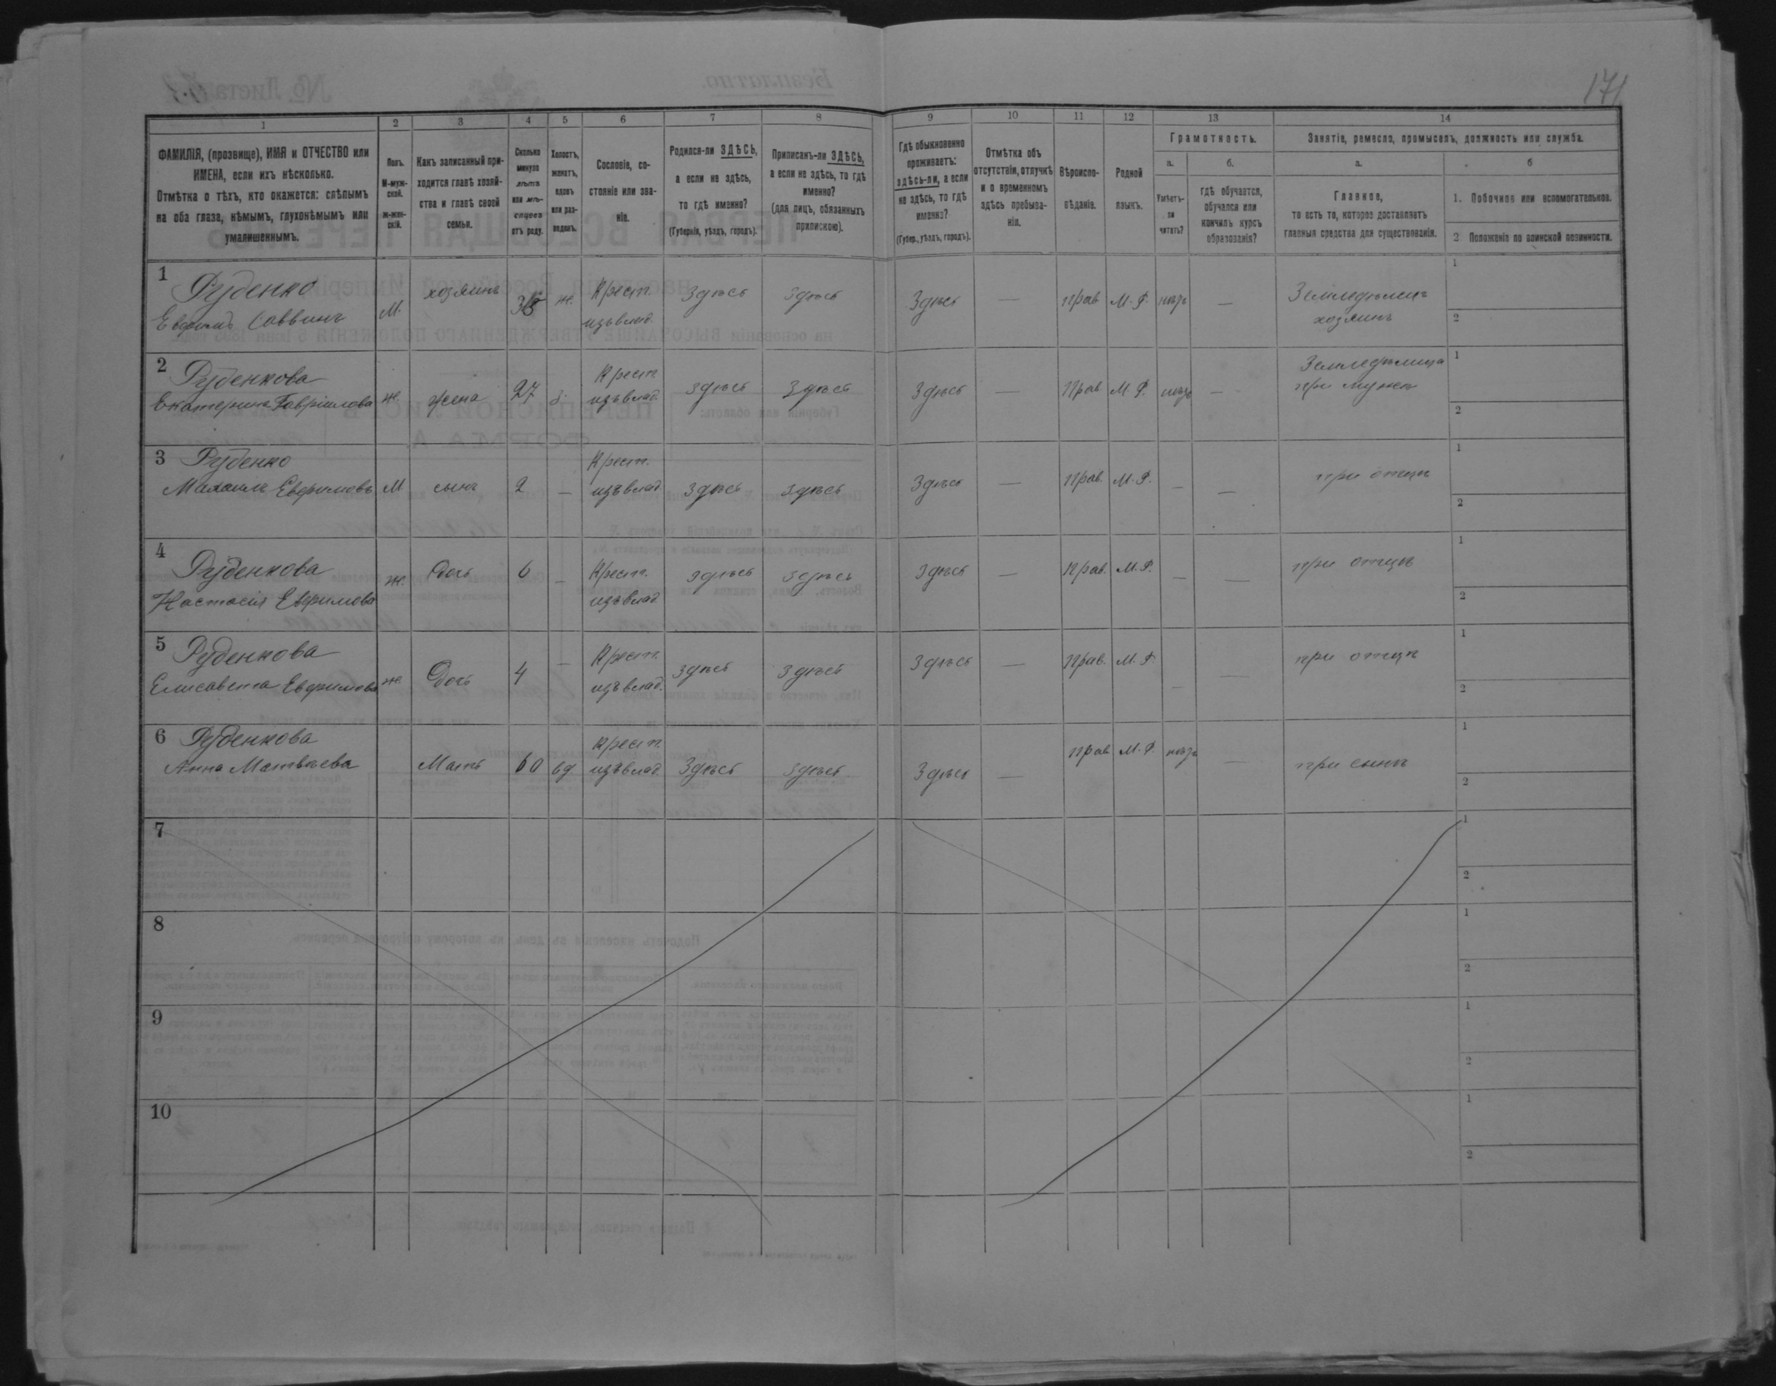 171
1
2
3
4
5
6
7
8
9
10
11
12
13
14
ФАМИЛІЯ, (прозвище), ИМЯ и ОТЧЕСТВО или
ИМЕНА, если ихъ нѣсколько.
Отмѣтка о тѣхъ, кто окажется: слѣпымъ
на оба глаза, нѣмымъ, глухонѣмымъ или
умалишеннымъ.
Полъ.
М-муж-
ской.
ж-жен-
скій.
Какъ записанный при-
ходится главѣ хозяй-
ства и главѣ своей
семьи.
Сколько
минуло
лѣтъ
или мѣ-
сяцевъ
отъ роду.
Холостъ,
женатъ,
вдовъ
или раз-
веденъ.
Сословіе, со-
стояніе или зва-
ніе.
Родился-ли ЗДѢСЬ,
а если не здѣсь,
то гдѣ именно?
(Губернія, уѣздъ, городъ).
Приписанъ-ли ЗДѢСЬ,
а если не здѣсь, то гдѣ
именно?
(для лицъ, обязанныхъ
припискою).
Гдѣ обыкновенно
проживаетъ:
здѣсь-ли, а если
не здѣсь, то гдѣ
именно?
(Губер., уѣздъ, городъ).
Отмѣтка объ
отсутствіи, отлучкѣ
и о временномъ
здѣсь пребыва-
ніи.
Вѣроиспо-
вѣданіе.
Родной
языкъ.
Грамотность.
а.
б.
Умѣетъ-
ли
читать?
гдѣ обучается,
обучался или
кончилъ курсъ
образованія?
Занятіе, ремесло, промыселъ, должность или служба.
а.
б
Главное,
то есть то, которое доставляетъ
главныя средства для существованія.
1. Побочное или вспомогательное.
2 Положеніе по воинской повинности.
1 Руденко
Евфимъ Саввинъ
М.
хозяинъ
ж.
Крест.
изъ влад.
Здѣсь
здѣсь
Здѣсь
—
прав
М.Р.
—
Земледѣлецъ
хозяинъ
1
2
2 Руденкова
Екатерина Гавріилова
ж.
жена
27
Крест
изъ влад.
здѣсь
Здѣсь
Здѣсь
—
Прав
М.Р.
—
Земледѣлица
при мужѣ
1
2
3 Руденко
Михаилъ Евфимовъ
М
сынъ
2
—
Крест.
изъ влад
здѣсь
здѣсь
Здѣсь
—
Прав.
М.Р.
—
—
при отцѣ
1
2
4 Руденкова
Настасія Евфимова
ж.
Дочь
6
—
Крест.
изъ влад.
здѣсь
здѣсь
здѣсь
—
Прав.
М.Р.
—
—
при отцѣ
1
2
5 Руденкова
Елисавета Евфимова
ж.
Дочь
4
—
Крест.
изъ влад.
здѣсь
здѣсь
Здѣсь
—
Прав.
М.Р
—
—
при отцѣ
1
2
6 Руденкова
Анна Матвѣева
Мать
60
вд.
Крест
изъ влад.
Здѣсь
здѣсь
Здѣсь
—
прав
М.Р.
—
при сынѣ
1
2
7
1
2
8
1
2
9
1
2
10
1
2